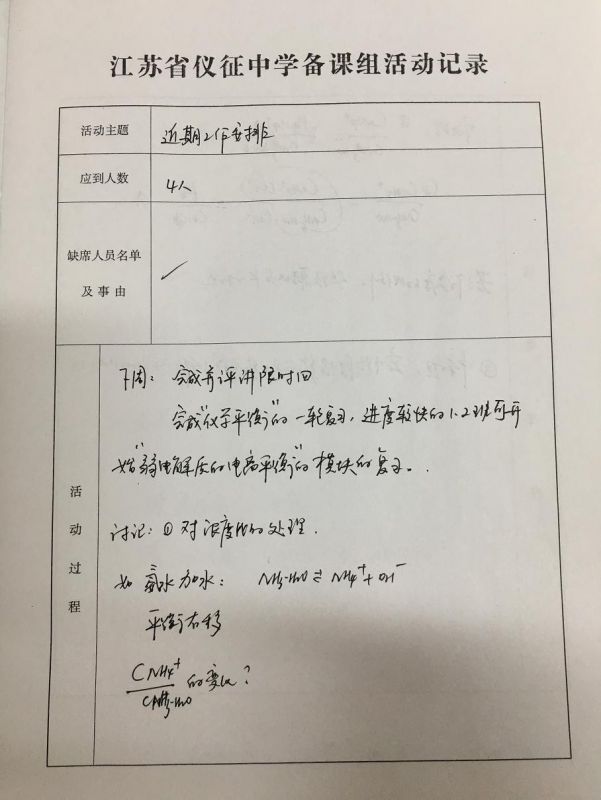 江苏省仪征中学备课组活动记录
活动主题
近期工作安排
应到人数
4人
缺席人员名单
及事由
✓
活动过程
下周：完成并评讲限时四
完成“化学平衡”的一轮复习，进度较快的1.2班可开
始“弱电解质的电离平衡”的模块的复习。
讨论：①对浓度比的处理.
如 氨水加水： NH3·H2O ⇌ NH4⁺ + OH⁻
平衡右移
CNH4⁺/CNH3·H2O 的变化？